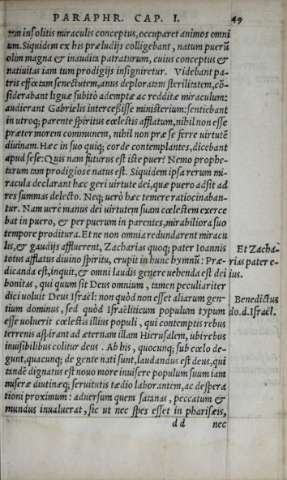 PARAPHR. CAP. I. 49
insolitis miraculis conceptus, occuparet animos omni
um. Siquidem ex his præludijs colligebant, natum puerũ
olim magna & inaudita patraturum, cuius conceptus &
natiuitas iam tum prodigijs insigniretur. Videbant pa-
tris effœtam senectutem, anus deploratam sterilitatem, cõ-
siderabant linguæ subitò ademptæ ac redditæ miraculum:
audierant Gabrielis intercessisse ministerium: sentiebant
in utroq; parente spiritus cœlestis afflatum, nihil non esse
præter morem communem, nihil non præ se ferre uirtutẽ
diuinam. Hæc in suo quiq; corde contemplantes, dicebant
apud sese: Quis nam futurus est iste puer? Nemo prophe-
tarum tam prodigiose natus est. Siquidem ipsa rerum mi-
racula declarant hæc geri uirtute dei, quæ puero adsit ad
res summas delecto. Neq; uerò hæc temere ratiocinaban-
tur. Nam uerè manus dei uirtutem suam cœlestem exerce
bat in puero, & per puerum in parentes, mirabiliora suo
tempore proditura. Et ne non omnia redundarent miracu
lis, & gaudijs affluerent, Zacharias quoq; pater Ioannis
totus afflatus diuino spiritu, erupit in hunc hymnũ: Præ-
dicanda est, inquit, & omni laudis genere uehenda est dei
bonitas, qui quum sit Deus omnium, tamen peculiariter
dici uoluit Deus Israël: non quòd non esset aliarum gen-
tium dominus, sed quòd Israëliticum populum typum
esse uoluerit cœlestis illius populi, qui contemptis rebus
terrenis aspirant ad æternam illam Hierusalem, ubi rebus
inuisibilibus colitur deus. Ab his, quocunq; sub cœlo de-
gunt, quacunq; de gente nati sunt, laudandus est deus, qui
tandẽ dignatus est nouo more inuisere populum suum iam
miseræ diutinæq; seruitutis tædio laborantem, ac despera
tioni proximum: aduersum quem satanas, peccatum &
mundus inualuerat, sic ut nec spes esset in phariseis,
dd nec
Et Zacha-
rias pater e-
ius.
Benedictus
do. d. Israël.